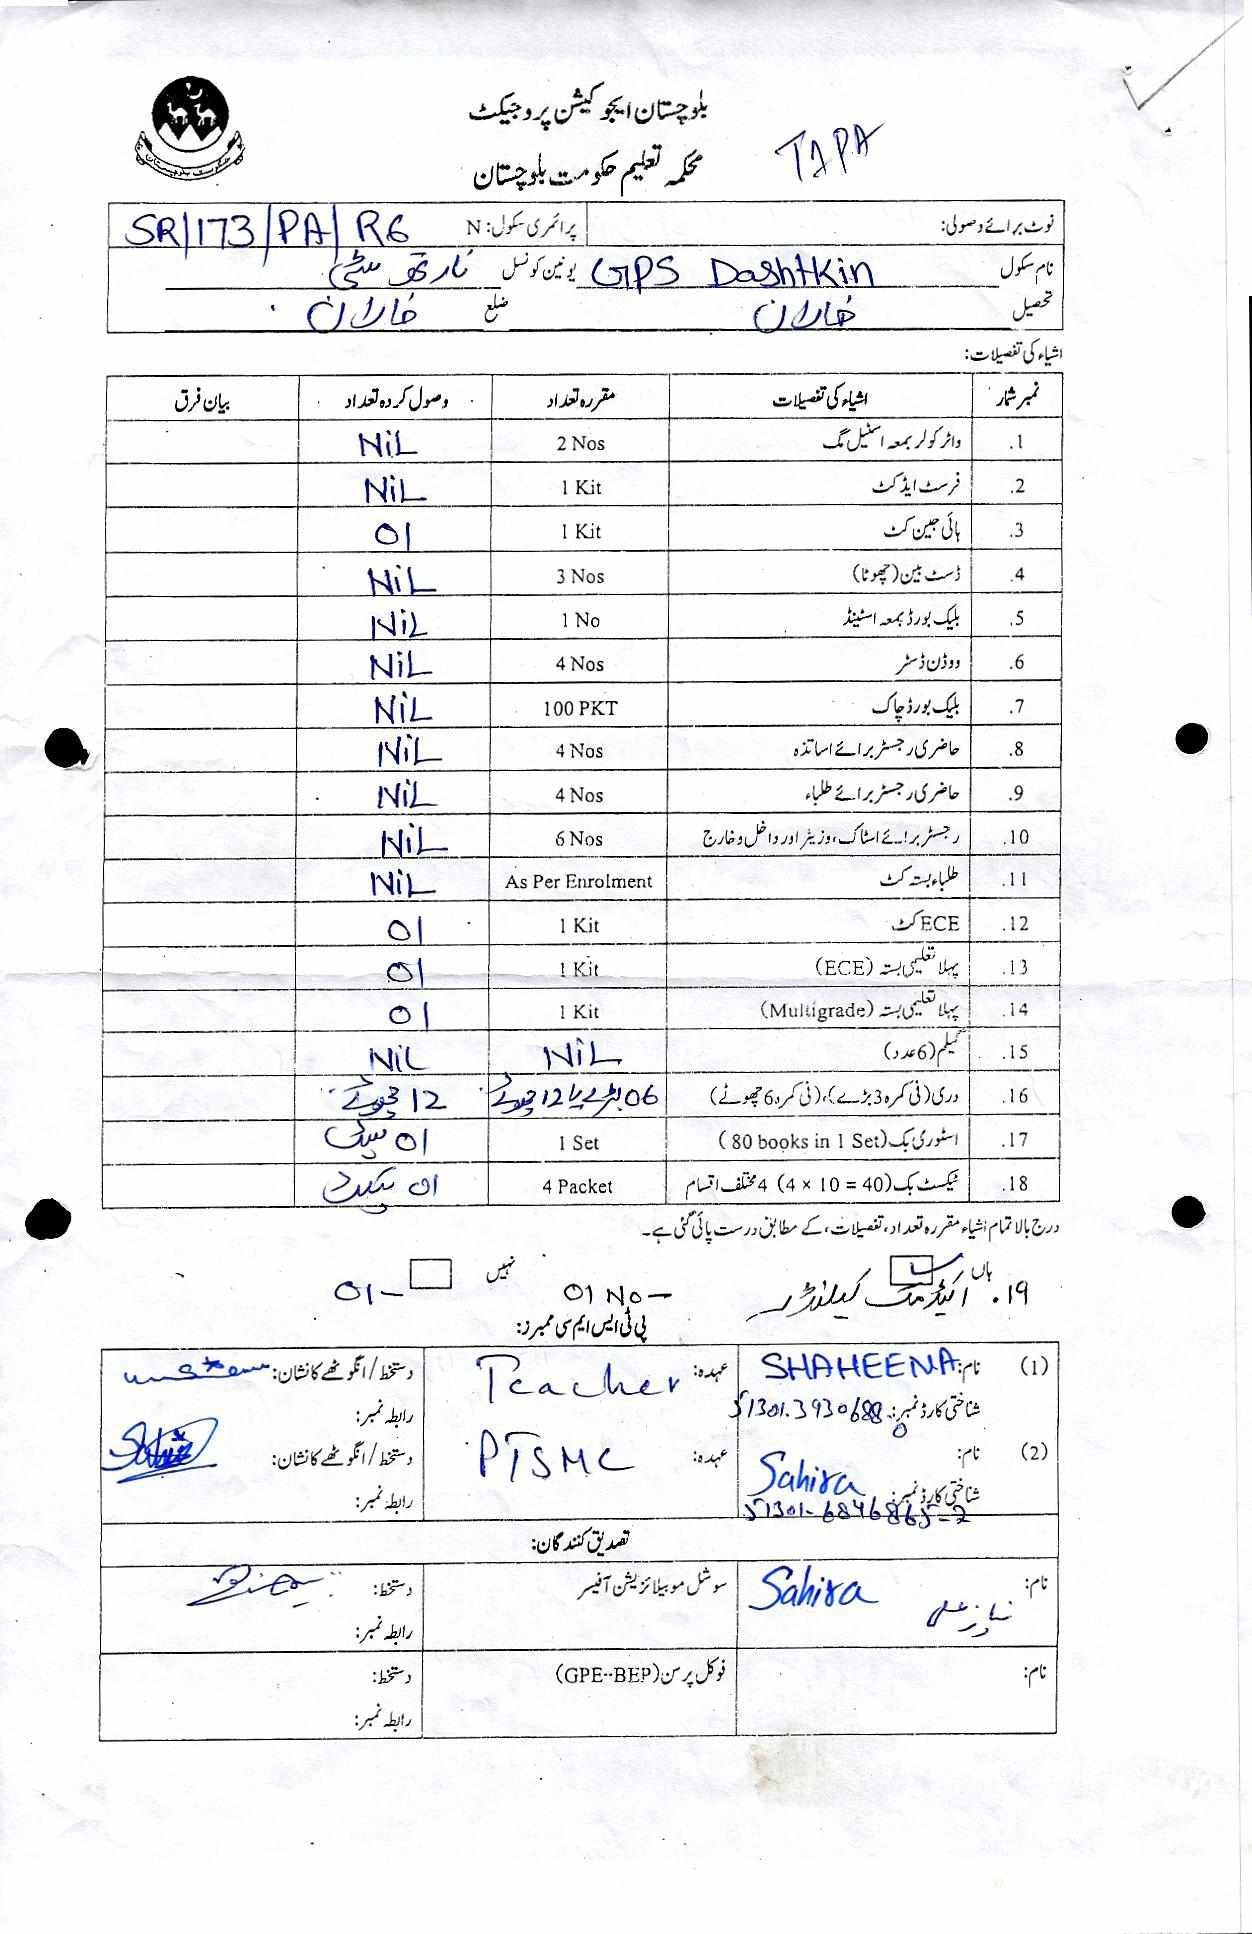 بلوچستان ایجوکیشن پروجیکٹ
محکمہ تعلیم حکومت بلوچستان
نوٹ برائے وصولی: پرائمری سکول: N SR/173/PA/R6
نام سکول GPS Dashtkin یونین کونسل نارتھ سٹی
تحصیل خاران ضلع خاران
اشیاء کی تفصیلات:
نمبر شمار اشیاء کی تفصیلات مقررہ تعداد وصول کردہ تعداد بیان فرق
.1 واٹر کولر بمعہ اسٹیل مگ 2 Nos NiL
.2 فرسٹ ایڈ کٹ 1 Kit NiL
.3 ہائی جین کٹ 1 Kit 01
.4 ڈسٹ بین (چھوٹا) 3 Nos NiL
.5 بلیک بورڈ بمعہ اسٹینڈ 1 No NiL
.6 ووڈن ڈسٹر 4 Nos NiL
.7 بلیک بورڈ چاک 100 PKT NiL
.8 حاضری رجسٹر برائے اساتذہ 4 Nos NiL
.9 حاضری رجسٹر برائے طلباء 4 Nos NiL
.10 رجسٹر برائے اسٹاک، وزیٹر اور داخل و خارج 6 Nos NiL
.11 طلباء بستہ کٹ As Per Enrolment NiL
.12 ECE کٹ 1 Kit 01
.13 پہلا تعلیمی بستہ (ECE) 1 Kit 01
.14 پہلا تعلیمی بستہ (Multigrade) 1 Kit 01
.15 گیلم (6 عدد) NiL NiL
.16 دری (فی کمرہ 3 بڑے)، (فی کمرہ 6 چھوٹے) 06 بڑے یا 12 چھوٹے 12 چھوٹے
.17 اسٹوری بک (80 books in 1 Set) 1 Set 01 سیٹ
.18 ٹیکسٹ بک (4 x 10 = 40) 4 مختلف اقسام 4 Packet 01 پیکٹ
درج بالا تمام اشیاء مقررہ تعداد، تفصیلات، کے مطابق درست پائی گئی ہے۔
ہاں نہیں
۱۹. اکیڈمک کیلنڈر 01 No – 01 –
پی ٹی ایس ایم سی ممبرز:
(1) نام: SHAHEENA عہدہ: Teacher دستخط / انگوٹھے کا نشان:
شناختی کارڈ نمبر: رابطہ نمبر:
(2) نام: Sahira عہدہ: PTSMC دستخط / انگوٹھے کا نشان:
شناختی کارڈ نمبر: 51301-6846865-2 رابطہ نمبر:
تصدیق کنندگان:
نام: Sahira سوشل موبیلائزیشن آفیسر دستخط:
رابطہ نمبر:
نام: فوکل پرسن (GPE--BEP) دستخط:
رابطہ نمبر: